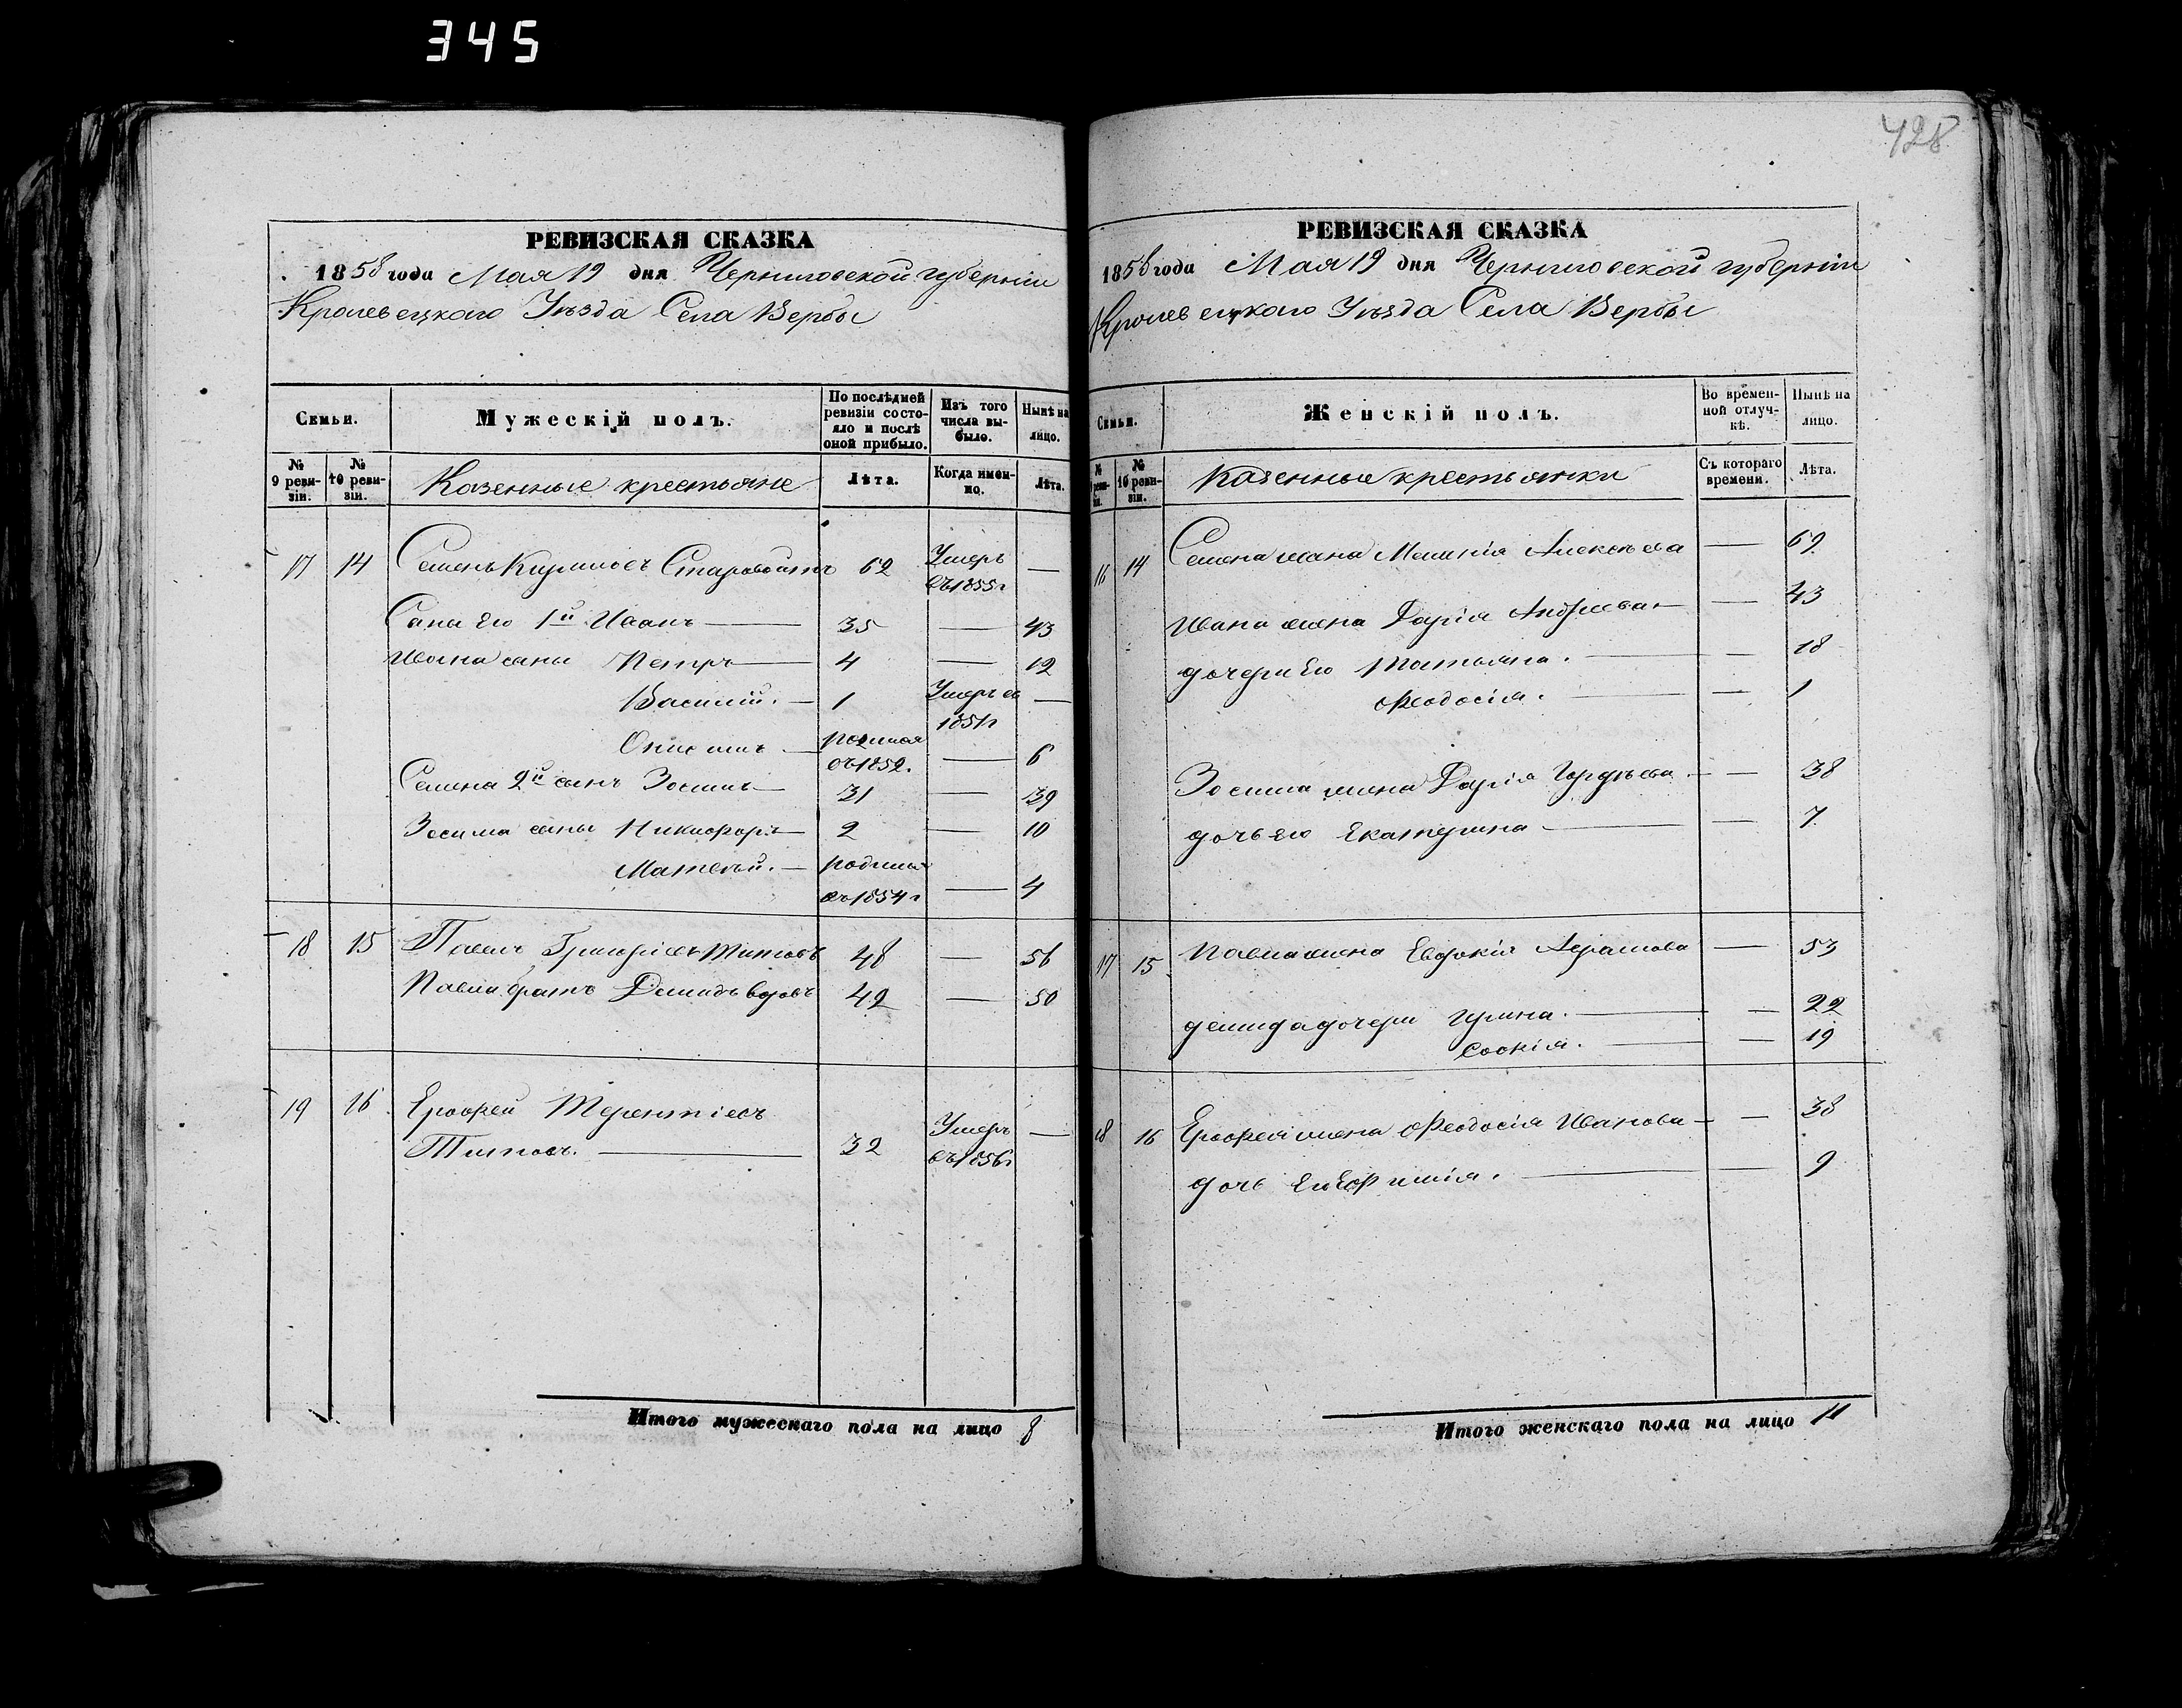 345
428
РЕВИЗСКАЯ СКАЗКА
1858 года Мая 19 дня Черниговской губерніи
Кролевецкаго Уѣзда Села Вербы
Семьи.
Мужескій полъ.
По послѣдней ревизіи состояло и послѣ оной прибыло.
Изъ того числа выбыло.
Нынѣ на лицо.
№ 9 ревизіи.
№ 10 ревизіи.
Казенные крестьяне
Лѣта.
Когда именно.
Лѣта.
17 14 Семенъ Кириловъ Старовойтъ 62 Умеръ въ 1855 г —
Сины его 1й Иванъ — 35 — 43
Ивана сины Петръ — 4 — 12
Василий. — 1 Умеръ въ 1851 г —
Онисимъ — родился въ 1852. — 6
Семена 2й сынъ Зосимъ — 31 — 39
Зосима сины Никифоръ — 2 — 10
Матвѣй. — родился въ 1854 г — 4
18 15 Павелъ Григоріевъ Титовъ 48 — 56
Павла братъ Демидъ вдовъ 42 — 50
19 16 Ерофей Терентіевъ
Титовъ. — 32 Умеръ въ 1856 г —
Итого мужескаго пола на лицо 8
РЕВИЗСКАЯ СКАЗКА
1858 года Мая 19 дня Черниговской губерніи
Кролевецкаго Уѣзда Села Вербы
Семьи.
Женскій полъ.
Во временной отлучкѣ.
Нынѣ на лицо.
№ 10 ревизіи.
Казенные крестьянки
Съ котораго времени.
Лѣта.
16 14 Семена жена Алексѣева — 69
Ивана жена Дарія Андреева — — 43
дочери его Татьяна. — — 18
Феодосія. — — 1
Зосима жена Дарія Гордѣева — — 38
дочь его Екатерина — — 7
17 15 Павла жена Евдокія — 53
Демида дочери — — 22
Софія. — — 19
18 16 Ерофея жена Феодосія Иванова — — 38
дочь его Евфимія. — — 9
Итого женскаго пола на лицо 11